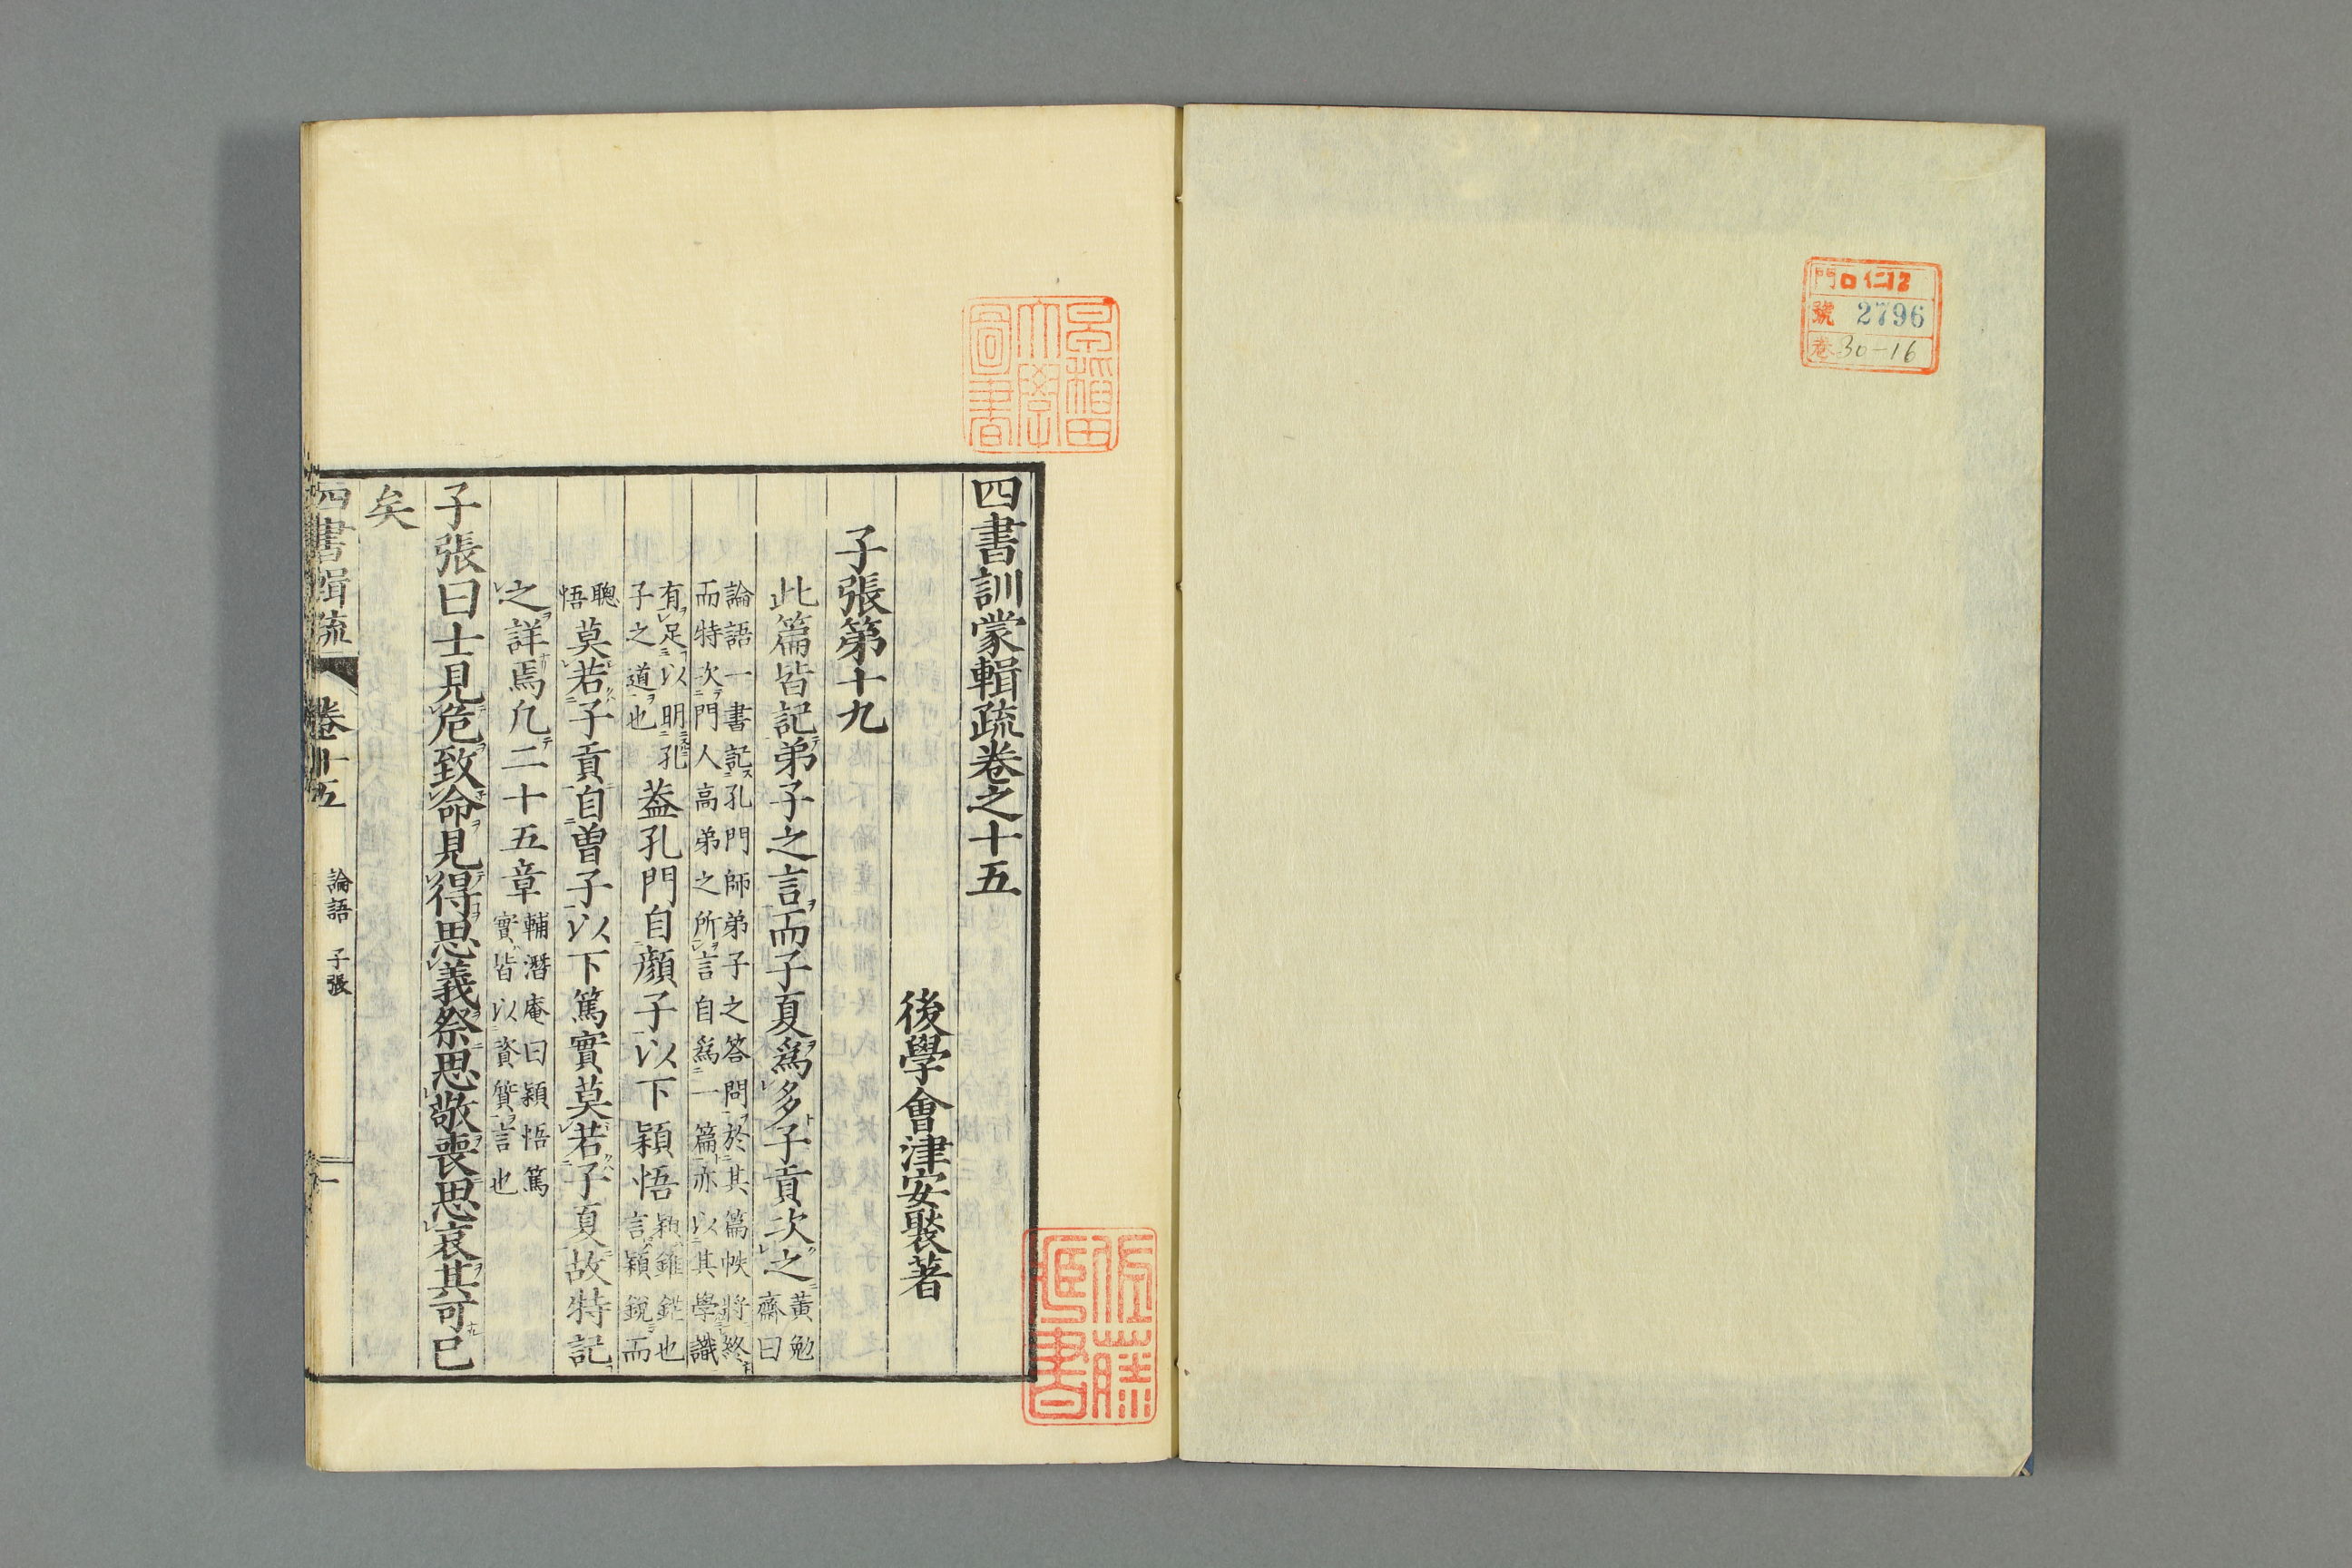 門 ロ仁12
號 2796
巻 30-16
早稲田
大學
圖書
四書訓蒙輯疏卷之十五
後學會津安褧著
子張第十九
此篇皆記弟子之言而子夏爲多子貢次之黃勉齋曰
論語一書記孔門師弟子之答問於其篇帙將終
而特次門人高弟之所言自爲一篇亦以其學識
有足以明孔子之道也蓋孔門自顏子以下穎悟穎錐鋩也言穎銳而
聰悟莫若子貢自曾子以下篤實莫若子夏故特記
之詳焉凡二十五章輔潛庵曰穎悟篤實皆以資質言也
子張曰士見危致命見得思義祭思敬喪思哀其可已
矣
四書輯疏 卷十五 論語 子張 一
佐藤
書